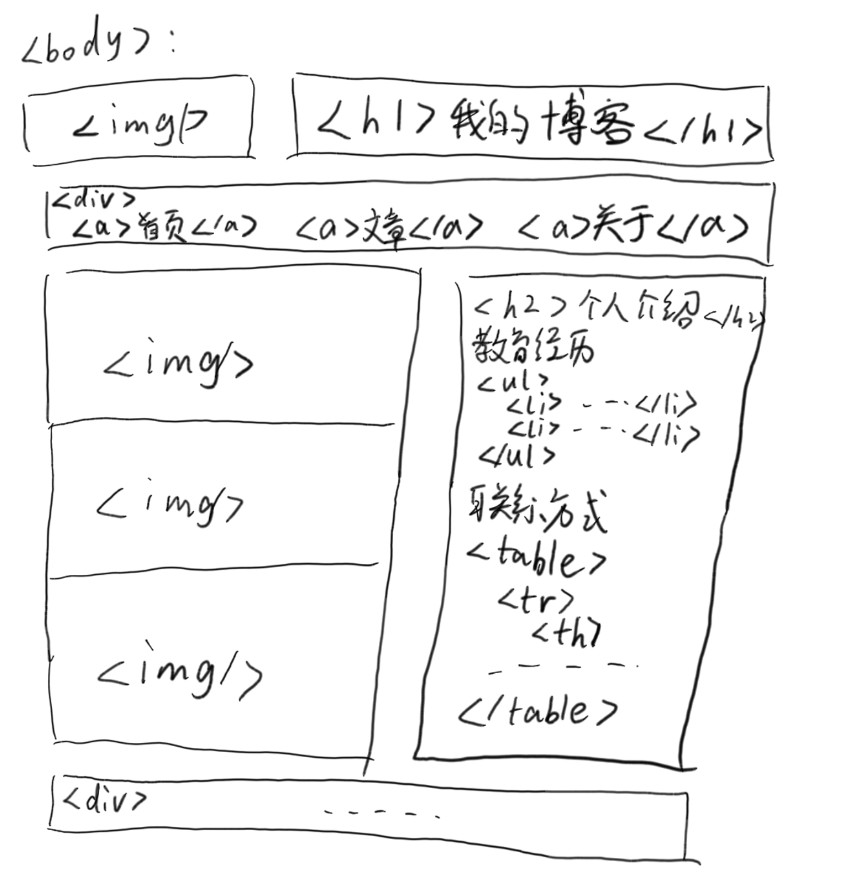 <body>:
<img/>
<h1>我的博客</h1>
<div>
<a>首页</a> <a>文章</a> <a>关于</a>
<img/>
<img/>
<img/>
<h2>个人介绍</h2>
教育经历
<ul>
<li>-----</li>
<li>-----</li>
</ul>
联系方式
<table>
<tr>
<th>
- - - -
</table>
<div>
-----